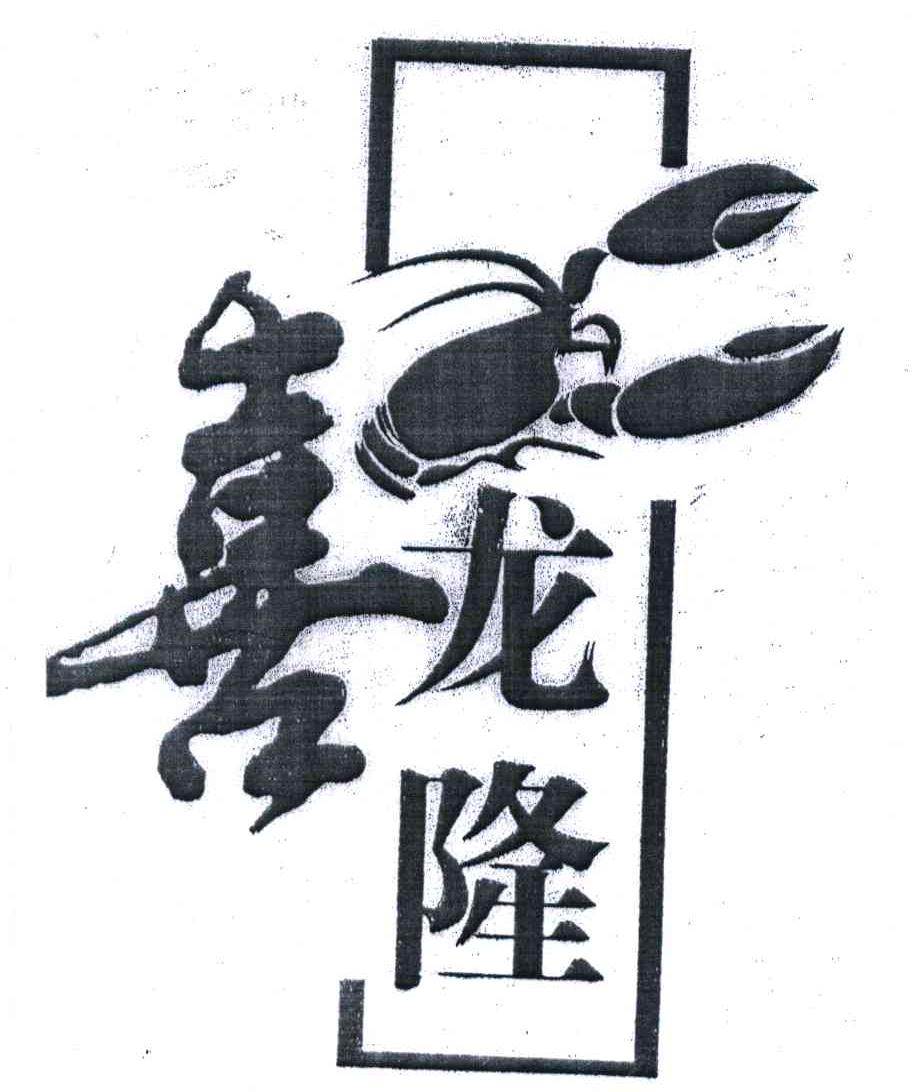 喜
龙
隆